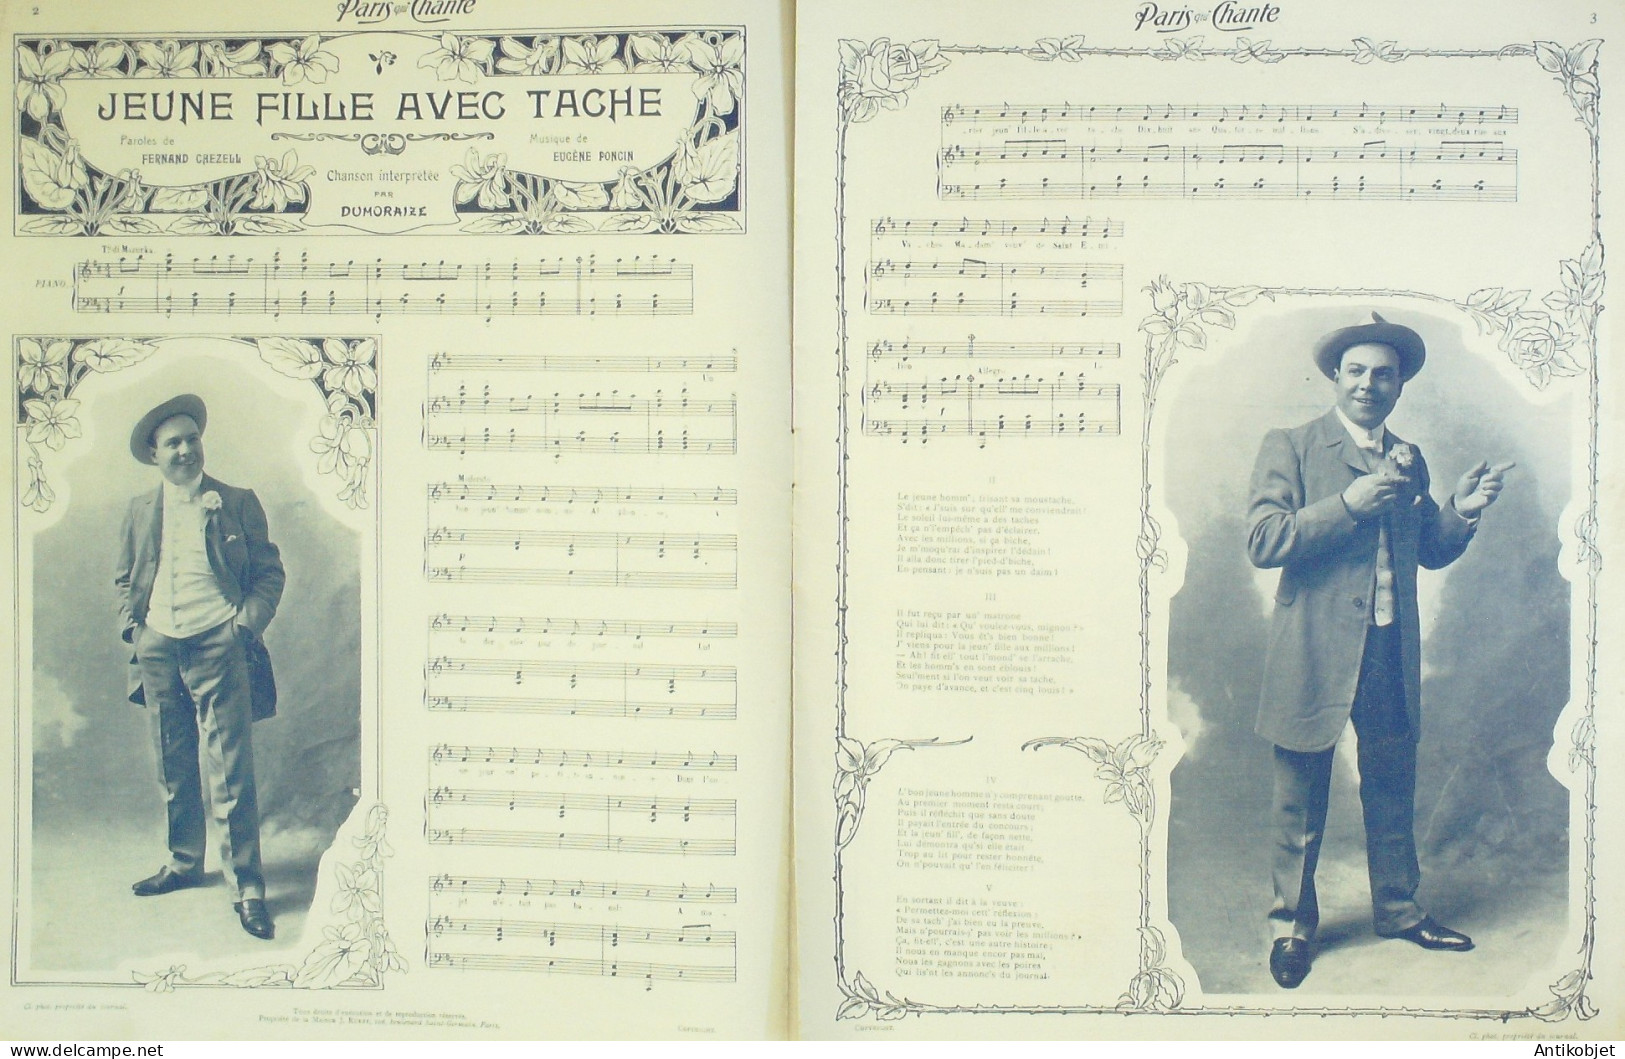 2
Paris qui Chante
JEUNE FILLE AVEC TACHE
Paroles de
FERNAND CHEZELL
Musique de
EUGÈNE PONCIN
Chanson interprétée
PAR
DUMORAIZE
Tº di Mazurka
PIANO
Un
Moderato
A
Dans l'on
jet n'é - tait pas ba - nal: A ma
Cl. phot. propriété du journal.
Tous droits d'exécution et de reproduction réservés.
boulevard Saint-Germain, Paris.
COPYRIGHT.
Paris qui Chante
3
rier jeun' fil-le a-vec ta-che Dix-huit ans Qua-tre millions S'a-dres-ser: vingt-deux rue aux
Va-ches Ma-dam' veuv' de Saint E-mi-
lion
Allegro
Le
II
Le jeune homm', frisant sa moustache,
S'dit: « J'suis sûr qu'ell' me conviendrait!
Le soleil lui-même a des taches
Et ça n'l'empêch' pas d'éclairer,
Avec les millions, si ça biche,
Je m'moqu'rai d'inspirer l'dédain!
Il alla donc tirer l'pied-d'biche,
En pensant: je n'suis pas un daim!
III
Il fut reçu par un' matrone
Qui lui dit: « Qu' voulez-vous, mignon? »
Il répliqua: Vous êt's bien bonne!
J' viens pour la jeun' fille aux millions!
— Ah! fit-ell' tout l'mond' se l'arrache,
Et les homm's en sont éblouis!
Seul'ment si l'on veut voir sa tache,
On paye d'avance, et c'est cinq louis! »
IV
L'bon jeune homme n'y comprenant goutte,
Au premier moment resta court;
Puis il réfléchit que sans doute
Il payait l'entrée du concours;
Et la jeun' fill', de façon nette,
Lui démontra qu'si elle était
Trop au lit pour rester honnête,
On n'pouvait qu' l'en féliciter!
V
En sortant il dit à la veuve:
« Permettez-moi cett' réflexion:
De sa tach' j'ai bien eu la preuve,
Mais n'pourrais-j' pas voir les millions? »
Ça, fit-ell', c'est une autre histoire;
Il nous en manque encor pas mal,
Nous les gagnons avec les poires
Qui lis'nt les annonc's du journal.
COPYRIGHT.
Cl. phot. propriété du journal.
Antikobjet